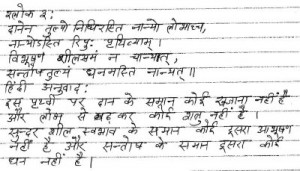 श्लोक २:
दानेन तुल्यो निधिरस्ति नान्यो लोभाच्च,
नान्योऽस्ति रिपुः पृथिव्याम्।
विभूषणं शीलसमं न चान्यत्,
सन्तोषतुल्यं धनमस्ति नान्यत्॥
हिंदी अनुवाद:
इस पृथ्वी पर दान के समान कोई खजाना नहीं है
और लोभ से बढ़ कर कोई शत्रु नहीं है ।
सुन्दर शील स्वभाव के समान कोई दूसरा आभूषण
नहीं है और सन्तोष के समान दूसरा कोई
धन नहीं है ।